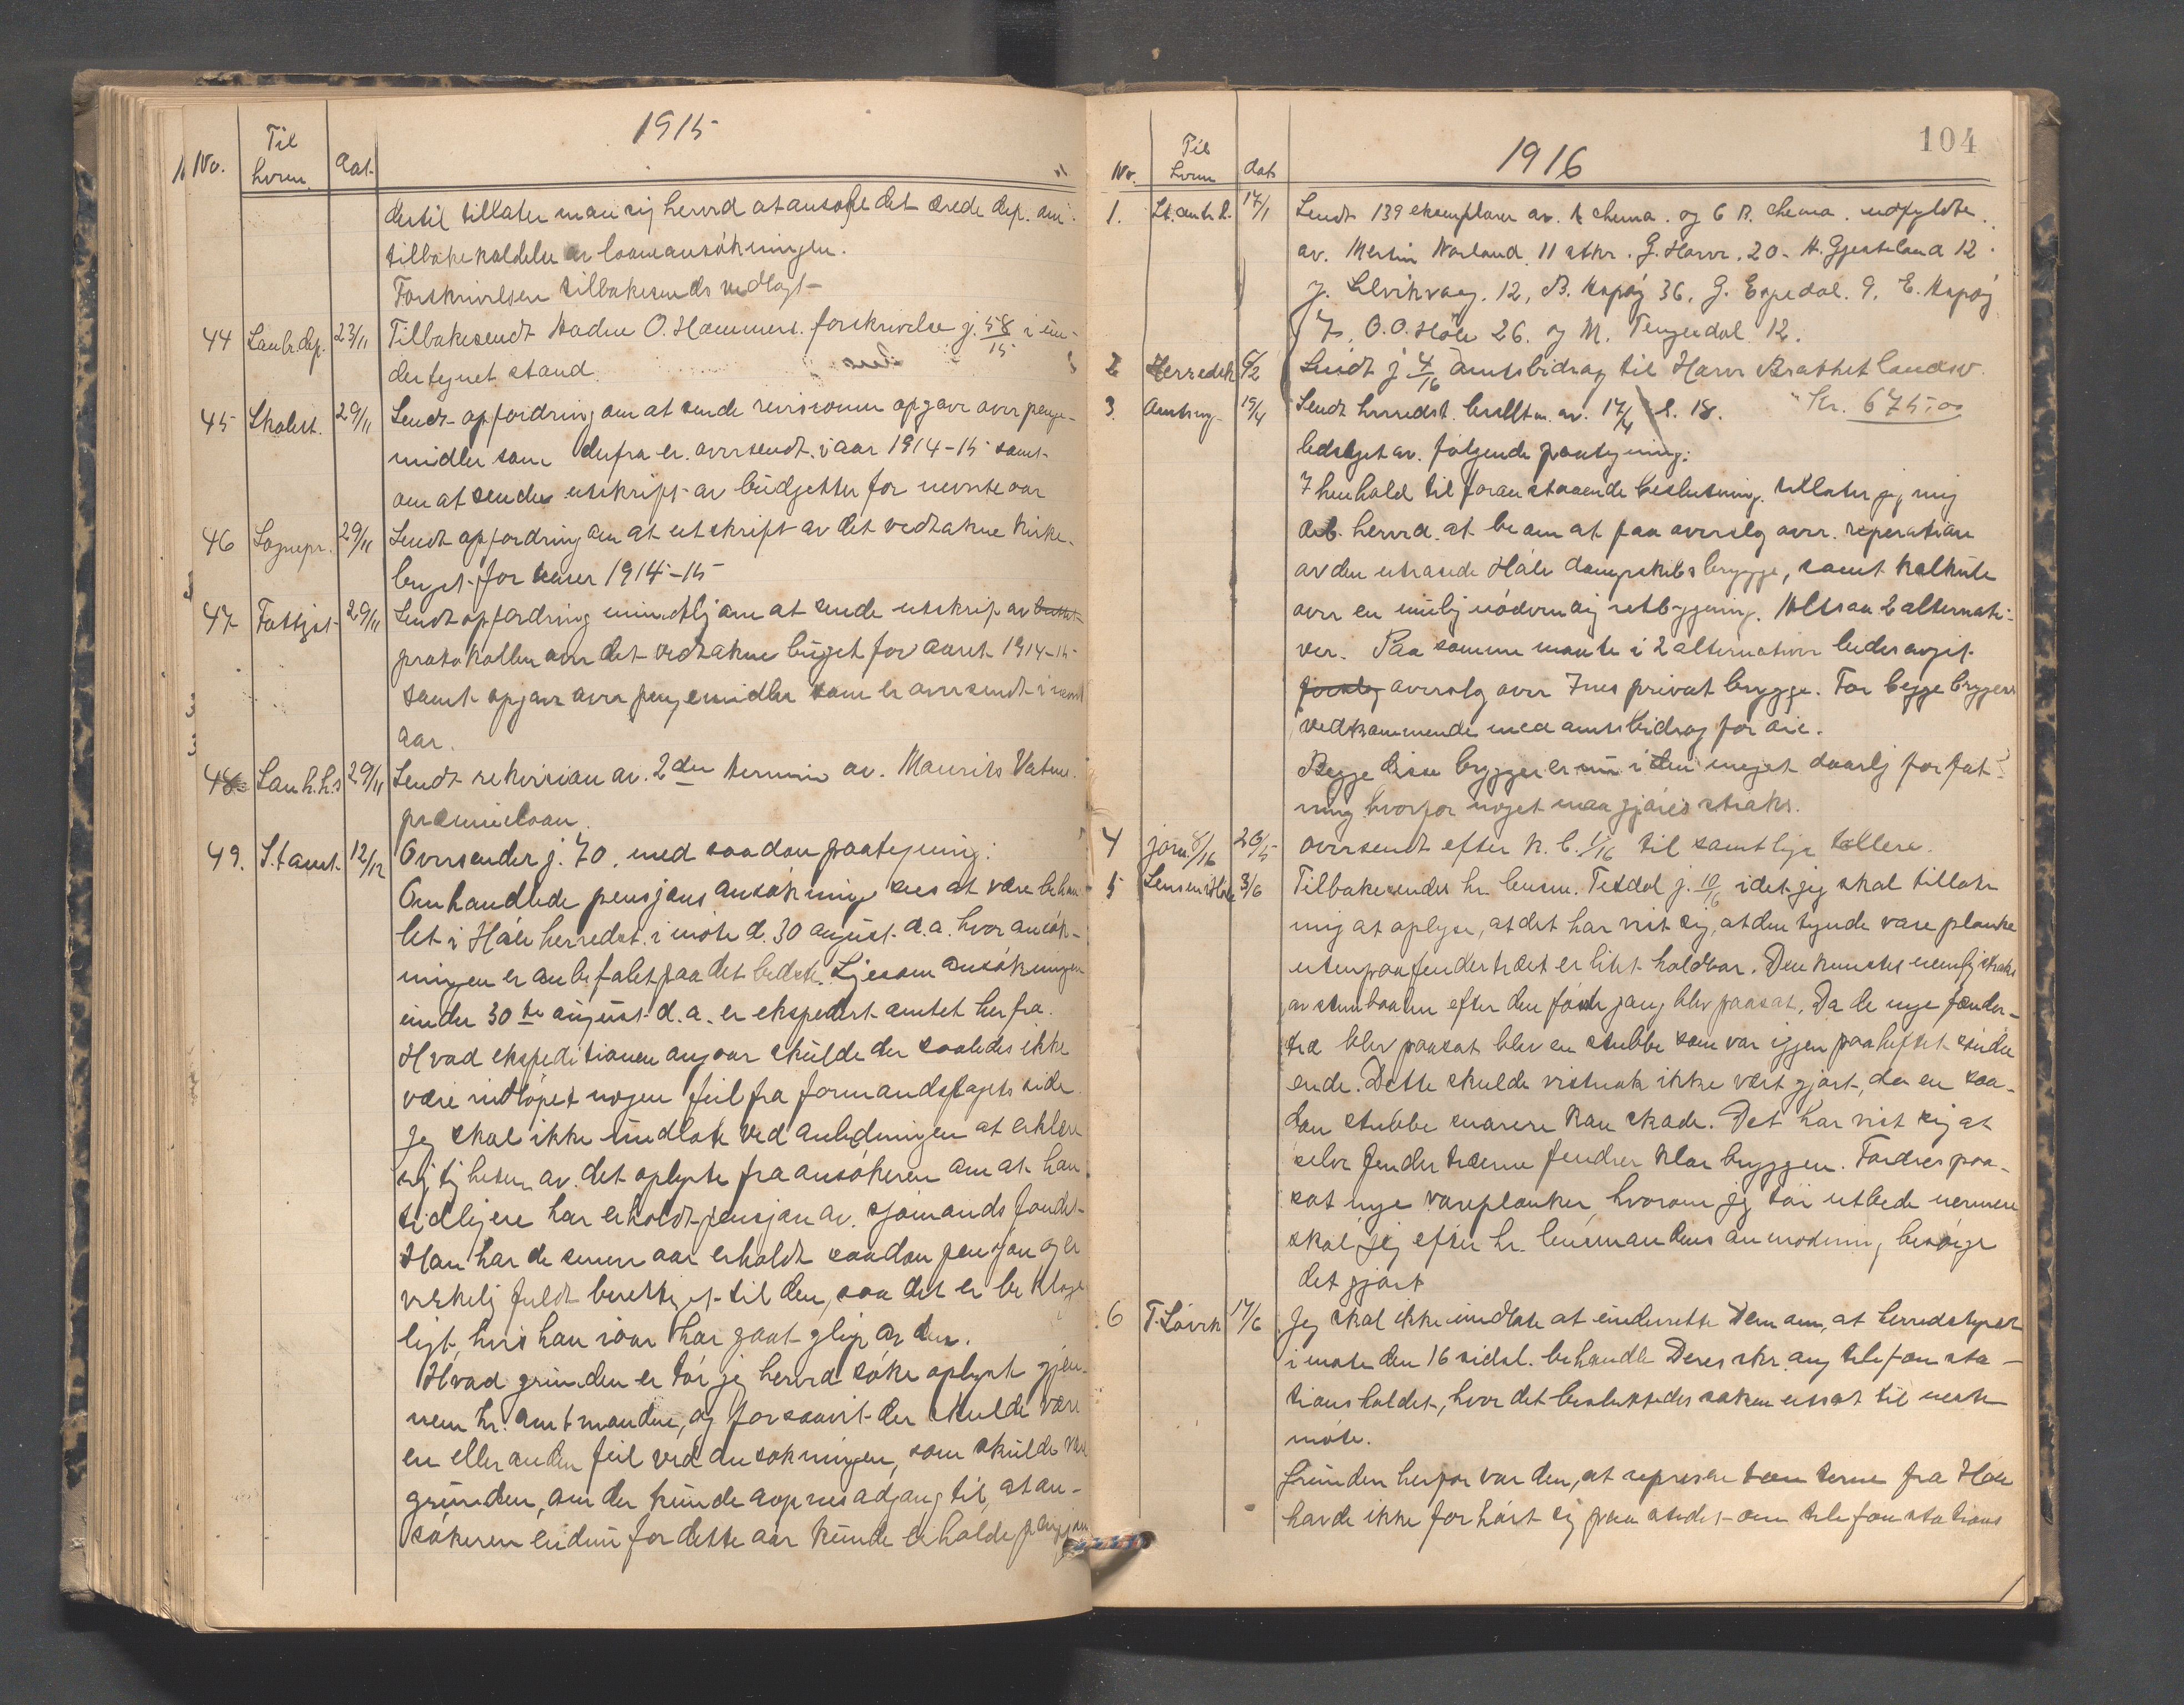 1915
No. Til hvem. Dat.
dertil tillater man sig herved at ansøke det ærede dep. om
tilbakekaldelse av laaneansøkningen.
Forskrivelsen tilbakesendes vedlagt
44 Lanbr.dep. 23/11 Tilbakesendt O. Hammers. forskrivelse j. 58/15 i un-
dertegnet stand.
45 Skolest. 29/11 Sendt opfordring om at sende revisionen opgave over penge-
midler som derfra er oversendt i aar 1914-15 samt
om at sende utskrift av budgetter for nevnte aar
46 Sognepr. 29/11 Sendt opfordring om at utskrift av det vedtakne kirke-
buget for 1914-15
47 Fattigst. 29/11 Sendt opfordring om at sende utskrip av
protokollen over det vedtakne buget for aaret 1914-15
samt opgave over pengemidler som er oversendt i nevnt
aar.
48 Lanh.h.s 29/11 Sendt rekvision av 2den termin av Maurits Vatne
præmielaan.
49. St.amt. 12/12 Oversender j. 70. med saadan paategning:
Omhandlede pensjons ansøkning sees at være behan-
let i Høle herredst. i møte d. 30 august d.a. hvor ansøk-
ningen er anbefalet paa det bedste. Ljesom ansøkningen
under 30te august d.a. er ekspedert amtet herfra.
Hvad ekspeditionen angaar skulde der saaledes ikke
være indløpet nogen feil fra formandskapets side.
Jeg skal ikke undlate ved anledningen at erklære
rigtigheten av det oplyste fra ansøkeren om at han
tidligere har erholdt pensjon av sjømandsfondet
Han har de senere aar erholdt saadan pensjon og er
virkelig fuldt berettiget til den, saa det er beklage-
ligt, hvis han iaar har gaat glip av den.
Hvad grunden er tør jeg herved søke oplyst gjen-
nem hr. amtmanden, og forsaavit der skulde være
en eller anden feil ved ansøkningen, som skulde være
grunden, om der kunde aapnes adgang til, at an-
søkeren endnu for dette aar kunde erholde pensjon
104
1916
No. Til hvem dat.
1. St.amtr.k. 17/1 Sendt 139 eksemplarer av A chema. og 6 B. chema. udfyldte
av. Martin Norland 11 stkr. G. Havn. 20. H. Gjesteland 12
J. Lervikvaag. 12, B. Kapøg 36, G. Espedal. 9. E. Kapøg
7. O.O. Høle 26. og M. Tengesdal 12.
2 Herredsk 5/2 Sendt j 4/16 amtsbidrag til Havn Brattet landsv.
3. Amting. 19/4 Sendt herredst. beslutn. av. 17/4 s. 18. Kr. 675,00
ledsaget av følgende paategning:
I henhold til foranstaaende beslutning tillater jeg mig
herved at be om at faa overslag over reperation
av den utrasede Høle dampskibsbrygge, samt kalkule
over en mulig nødvendig utbygning. Altsaa 2 alternati-
ver. Paa samme maate i 2 alternativer bedes avgit
overslag over Ims privat brygge. For begge brygers
vedkommende med amtsbidrag for øie.
Begge disse brygger er nu i den meget daarlig forfat-
ning hvorfor noget maa gjøres straks.
4 jørn. 8/16 26/5 oversendt efter K.b. 1/16 til samtlige tellere.
5 Lensm. 3/6 Tilbakesendes hr lensm. Tesdal j. 10/16 idet jeg skal tillate
mig at oplyse, at det har vist sig, at den tynde vare planke
utenpaa fendertræet er litet holdbar. Den knustes nemlig straks
av dampbaaten efter den første gang blev paasat. Da de nye fender-
træ blev paasat blev en stubbe som var igjen paaheftet i nedre
ende. Dette skulde vistnok ikke vært gjort, da en saa-
dan stubbe snarere kan skade. Det har vist sig at
selve fendertræerne fendrer klar bryggen. Fordres paa-
sat nye vareplanker, hvorom jeg tør utbede nermere
skal jeg efter hr. lensmandens anmodning besørge
det gjort
6 T. Løvik 17/6 Jeg skal ikke undlate at underrette Dem om, at herredstyret
i møte den 16 sidsl. behandle Deres skr. ang telefonsta-
tions holdet, hvor det besluttedes saken utsat til neste
møte.
Grunden herfor var den, at representanterne fra Høle
havde ikke forhørt sig paa stedet om telefonstations